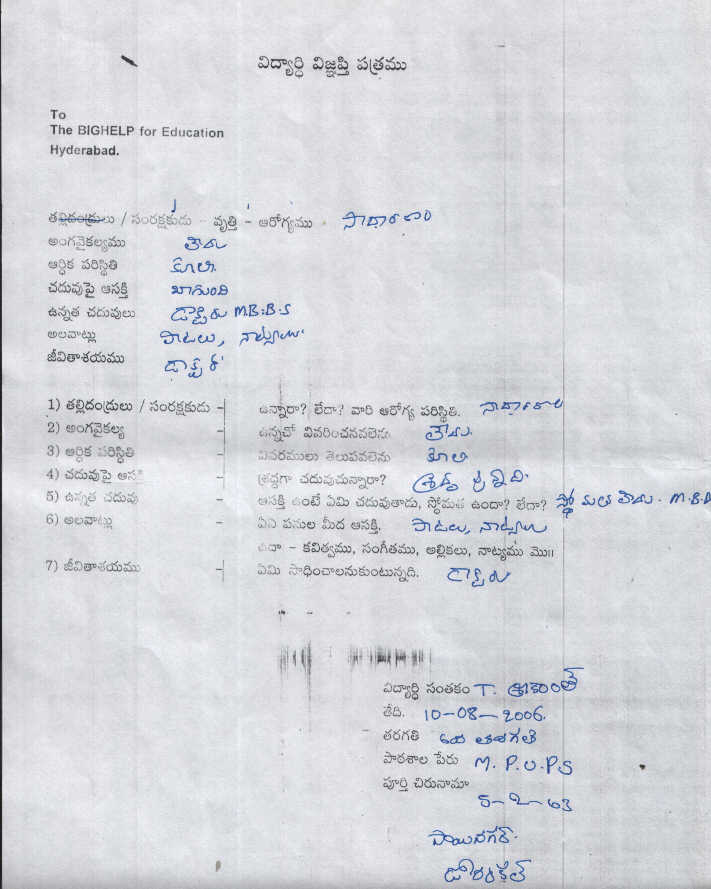 విద్యార్థి విజ్ఞప్తి పత్రము
To
The BIGHELP for Education
Hyderabad.
తల్లిదండ్రులు / సంరక్షకుడు - వృత్తి - ఆరోగ్యము - సాదారణం
అంగవైకల్యము లేదు
ఆర్థిక పరిస్థితి కూలి
చదువుపై ఆసక్తి బాగుంది
ఉన్నత చదువులు డాక్టరు M.B.B.S
అలవాట్లు పాటలు, నాట్యాలు
జీవితాశయము డాక్టర్
1) తల్లిదండ్రులు / సంరక్షకుడు - ఉన్నారా? లేదా? వారి ఆరోగ్య పరిస్థితి. సాదారణం
2) అంగవైకల్య - ఉన్నచో వివరించవలెను లేదు.
3) ఆర్థిక పరిస్థితి - వివరములు తెలుపవలెను కూలి
4) చదువుపై ఆసక్తి - శ్రద్ధగా చదువుచున్నారా? శ్రద్ధ
5) ఉన్నత చదువు - ఆసక్తి ఉంటే ఏమి చదువుతాడు, స్తోమత ఉందా? లేదా? స్తోమత లేదు. M.B.B
6) అలవాట్లు - ఏఏ పనుల మీద ఆసక్తి. పాటలు, నాట్యాలు
ఉదా - కవిత్వము, సంగీతము, అల్లికలు, నాట్యము మొ॥
7) జీవితాశయము - ఏమి సాధించాలనుకుంటున్నది. డాక్టరు
విద్యార్థి సంతకం T. శ్రీకాంత్
తేది. 10-08-2006.
తరగతి 6వ తరగతి
పాఠశాల పేరు M.P.U.P.S
పూర్తి చిరునామా
5-2-63
సాయినగర్.
డోర్నకల్